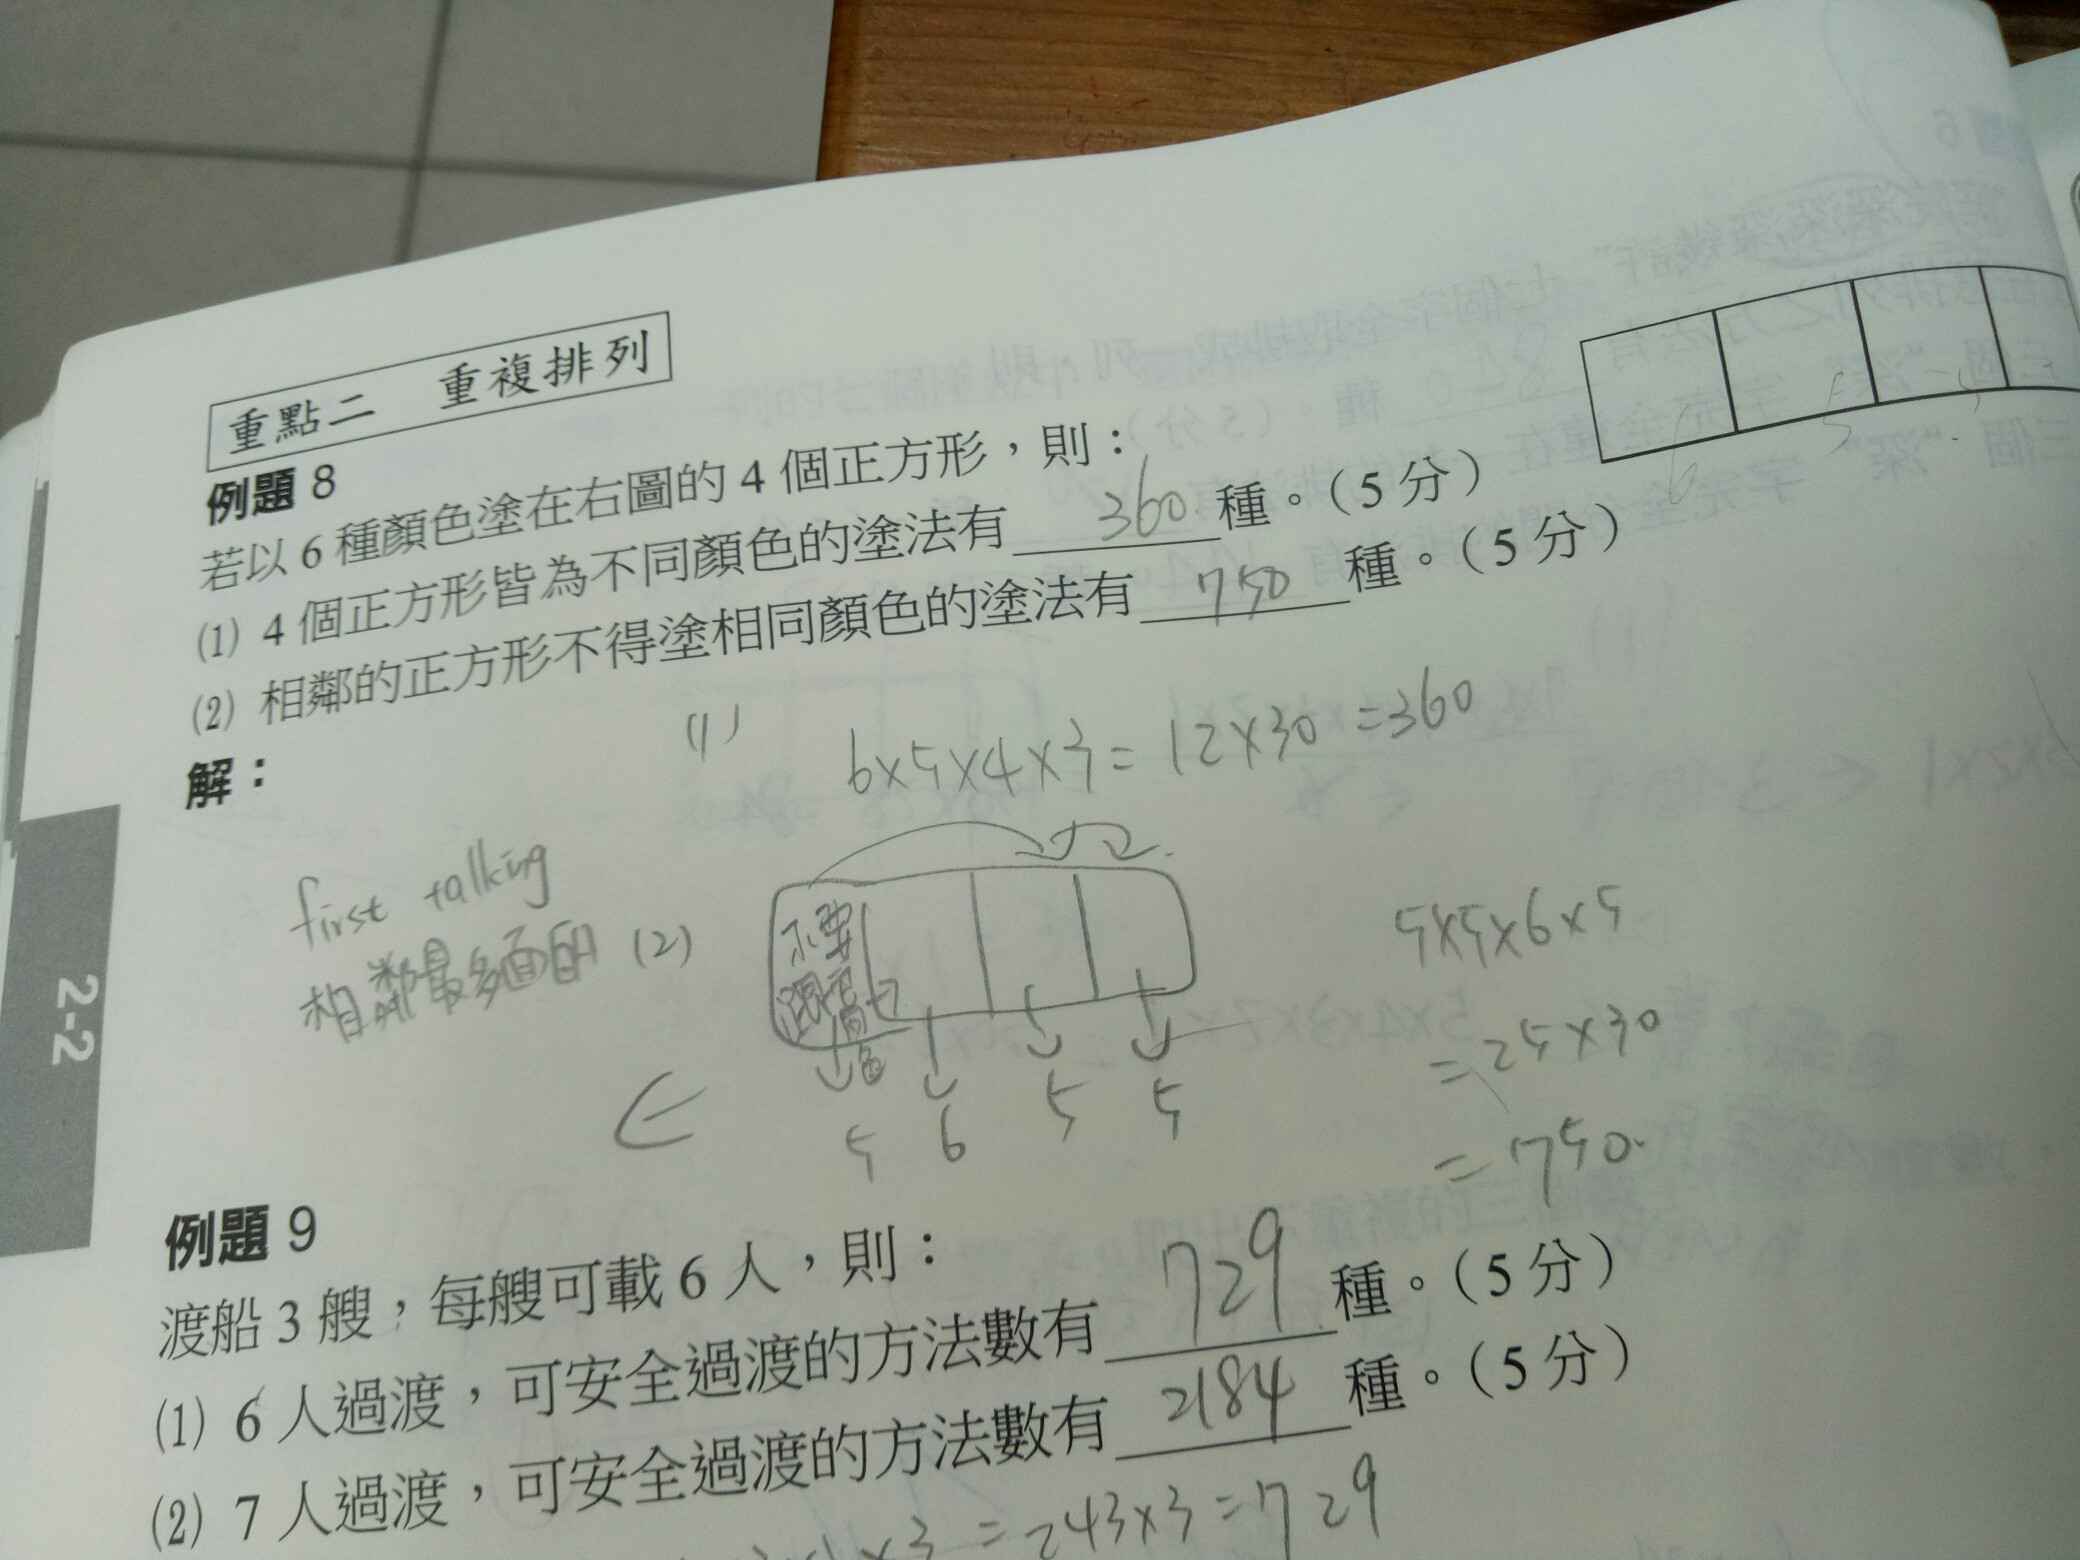 重點二 重複排列
例題 8
若以 6 種顏色塗在右圖的 4 個正方形，則：
(1) 4 個正方形皆為不同顏色的塗法有 360 種。(5 分)
(2) 相鄰的正方形不得塗相同顏色的塗法有 750 種。(5 分)
6 5
解：
(1) 6×5×4×3=12×30=360
first talking
相鄰最多面的
(2)
不要
跟
同
色
5 6 5 5
5×5×6×5
=25×30
=750
2-2
例題 9
渡船 3 艘，每艘可載 6 人，則：
(1) 6 人過渡，可安全過渡的方法數有 729 種。(5 分)
(2) 7 人過渡，可安全過渡的方法數有 2184 種。(5 分)
×3=243×3=729